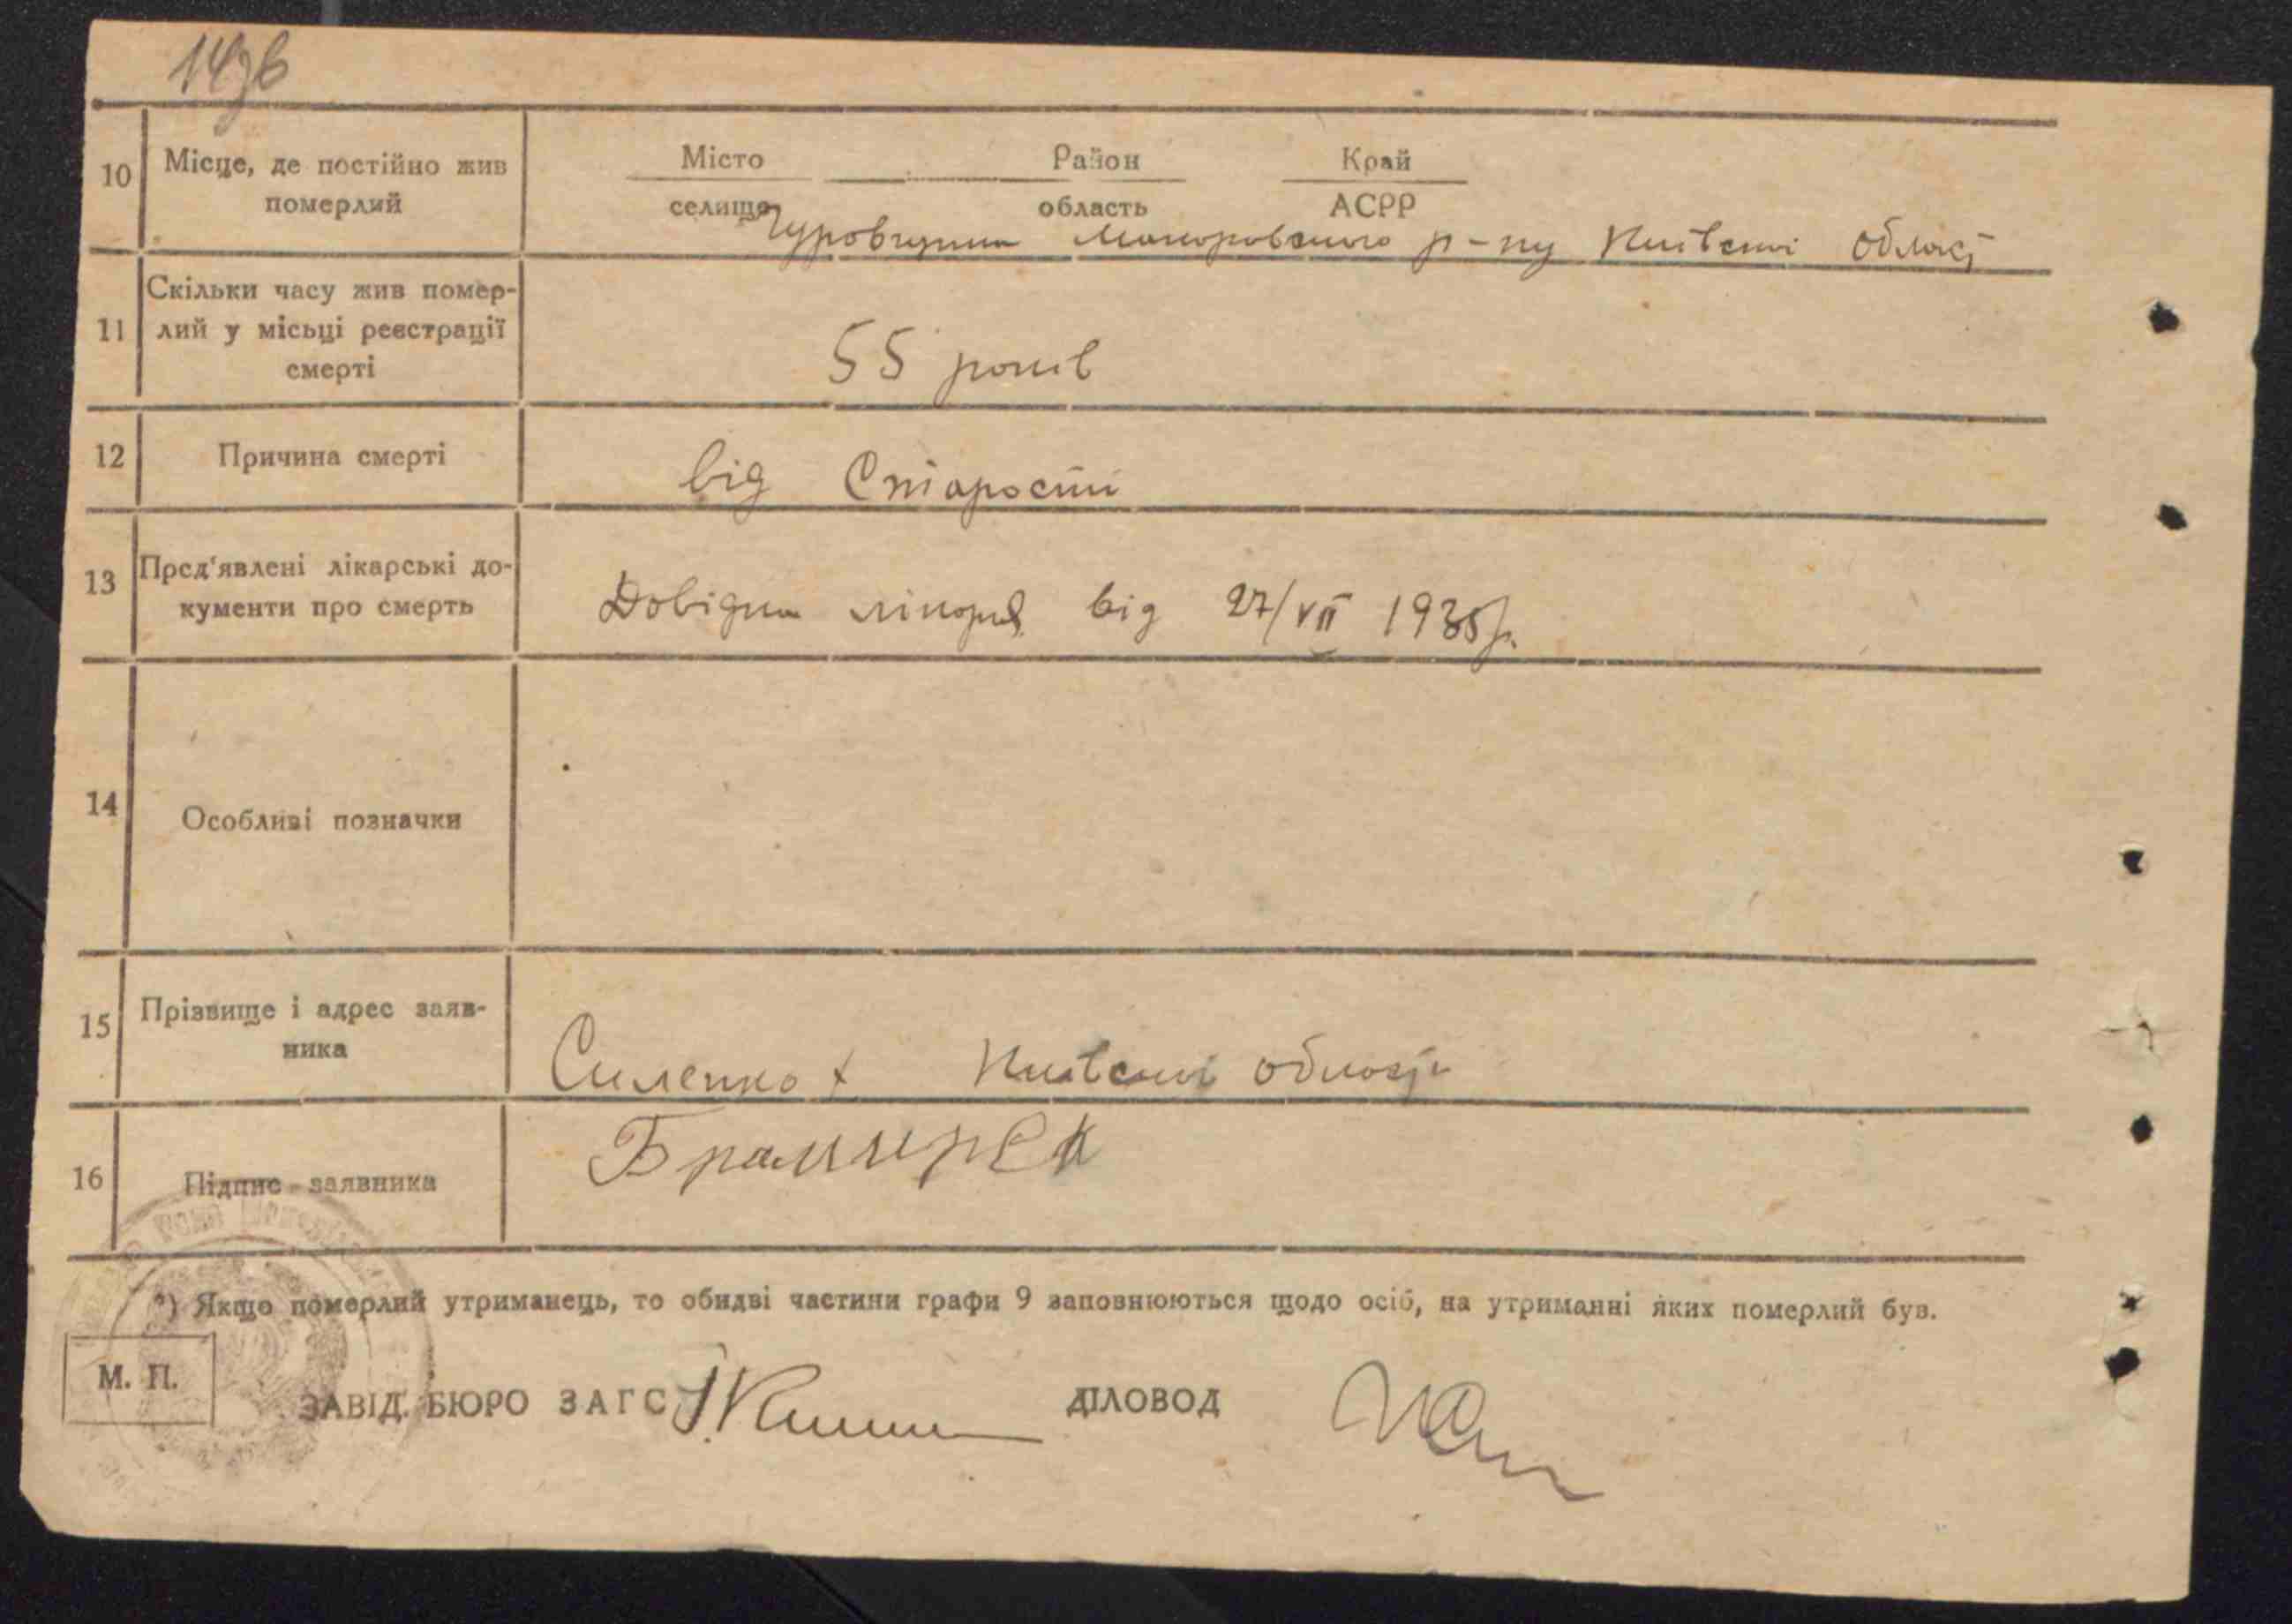 10 Місце, де постійно жив померлий
Місто Район Край
селище область АСРР
р-ну Київскої області
11 Скільки часу жив помер-
лий у місьці реєстрації
смерті
55 років
12 Причина смерті
від Старости
13 Пред'явлені лікарські до-
кументи про смерть
Довідка лікаря від 27/VII 1935 р.
14 Особливі позначки
15 Прізвище і адрес заяв-
ника
Силенко Київскої області
16 Підпис заявника
*) Якщо померлий утриманець, то обидві частини графи 9 заповнюються щодо осіб, на утриманні яких померлий був.
М. П.
ЗАВІД. БЮРО ЗАГС ДІЛОВОД